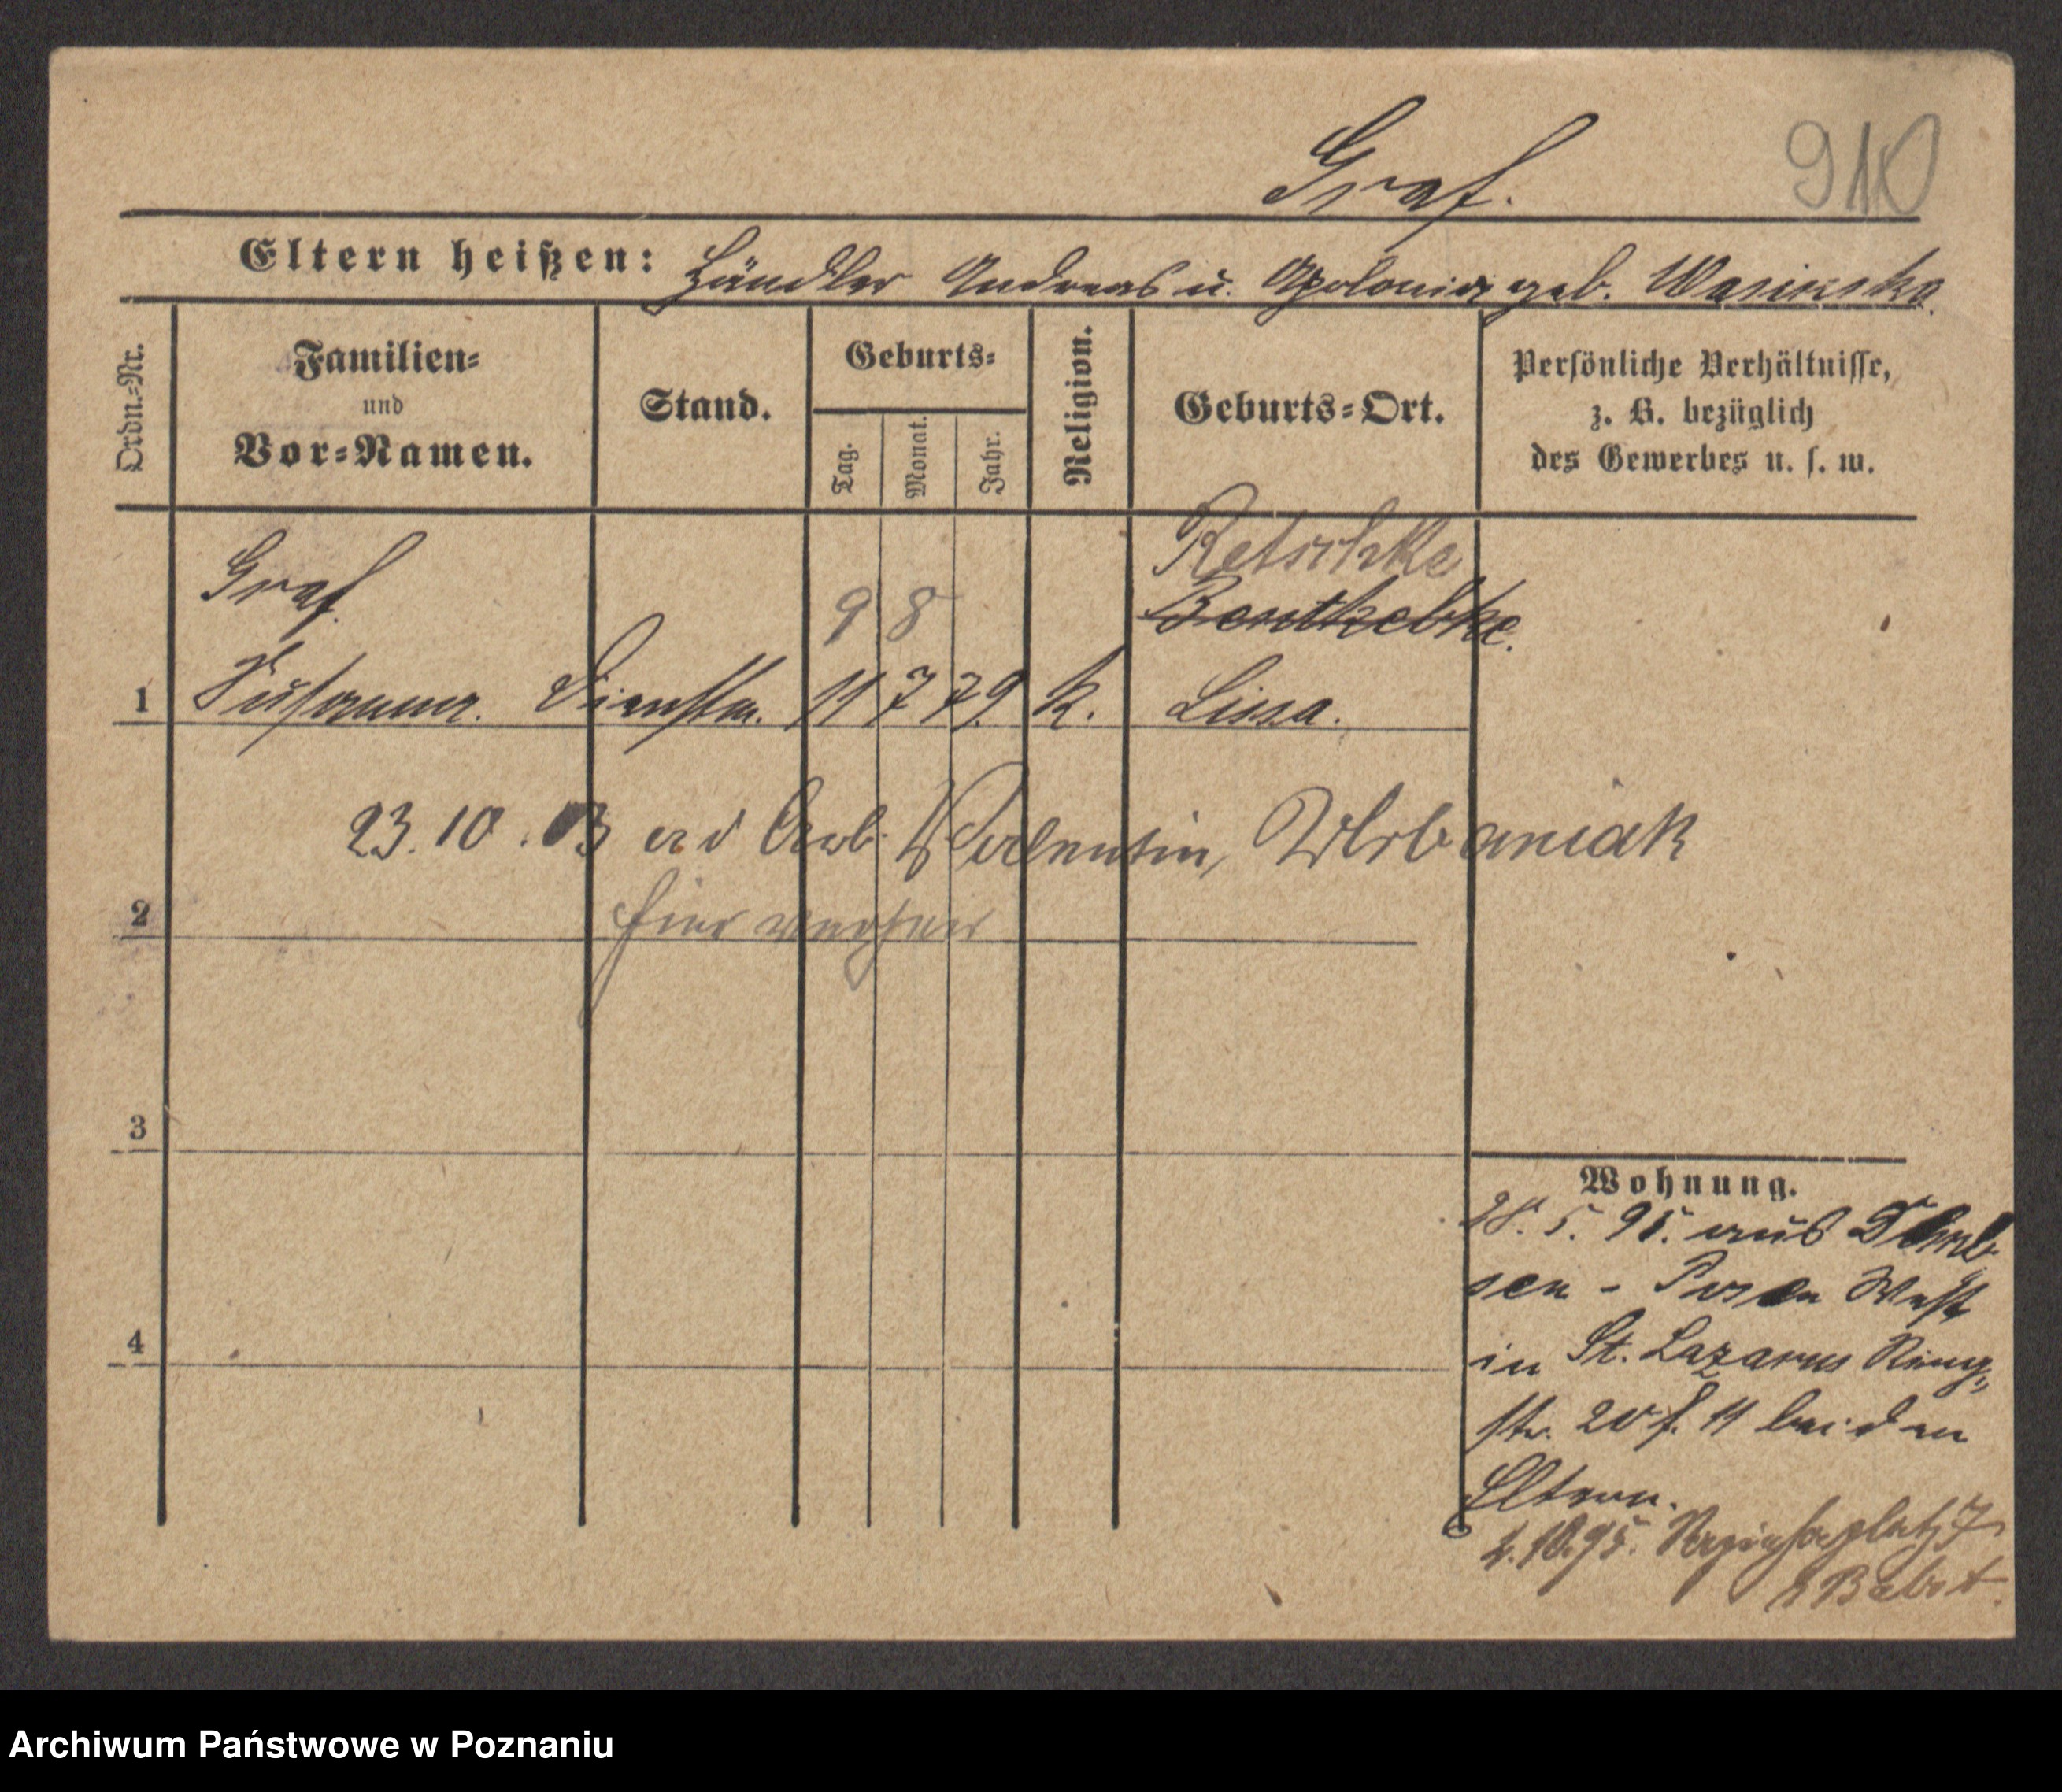 Graf.
910
Eltern heißen: Händler Andreas u. Apolonia geb. Wasinska.
Ordn.-Nr.
Familien-
und
Vor-Namen.
Stand.
Geburts-
Tag.
Monat.
Jahr.
Religion.
Geburts-Ort.
Persönliche Verhältnisse,
z. B. bezüglich
des Gewerbes u. s. w.
Retschke
Graf
9 8
1 Dienstm. 11 7 79. k. Lissa.
23.10.03 Arb. Valentin, Urbaniak
2
3
4
Wohnung.
28. 5. 95. aus
sen - Posen West
in St. Lazarus Ring-
str. 20 f. 11 bei den
Eltern.
2.10.95. 7